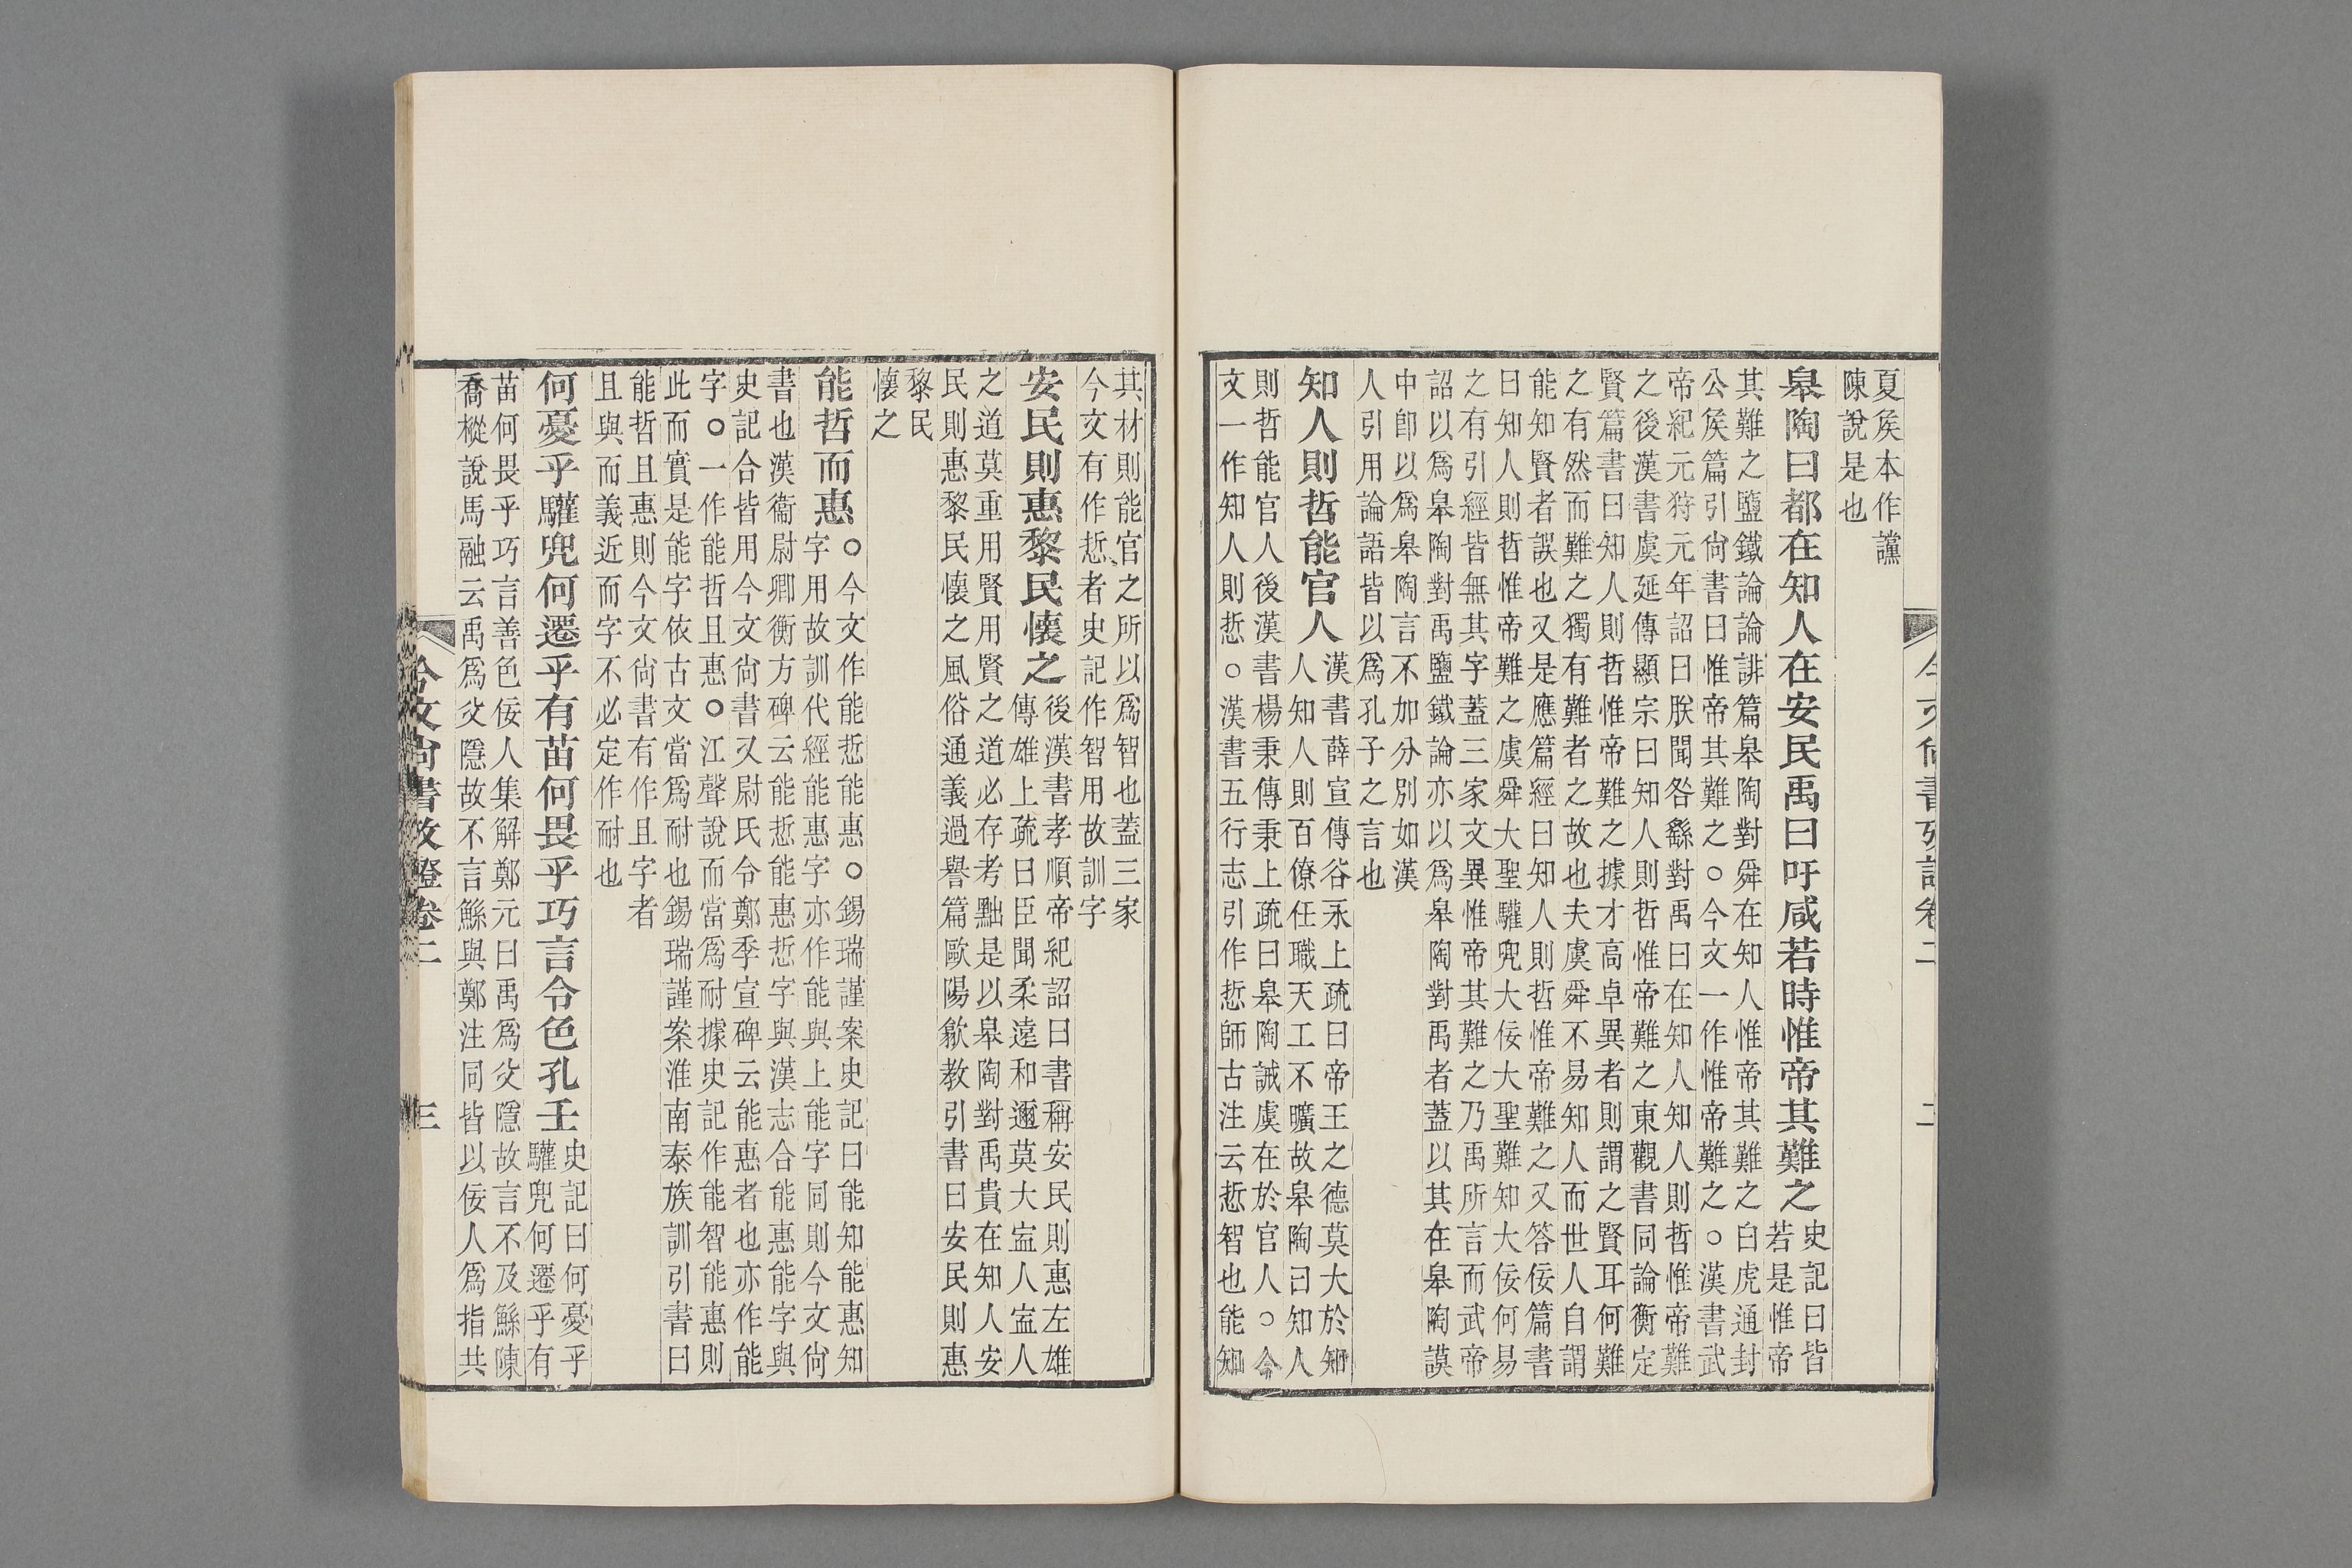 今文尚書攷證卷二
二
夏矦本作讜
陳說是也
皋陶曰都在知人在安民禹曰吁咸若時惟帝其難之
史記曰皆
若是惟帝
其難之鹽鐵論論誹篇皋陶對舜在知人惟帝其難之白虎通封
公矦篇引尙書曰惟帝其難之○今文一作惟帝難之○漢書武
帝紀元狩元年詔曰朕聞咎繇對禹曰在知人知人則哲惟帝難
之後漢書虞延傳顯宗曰知人則哲惟帝難之東觀書同論衡定
賢篇書曰知人則哲惟帝難之據才高卓異者則謂之賢耳何難
之有然而難之獨有難者之故也夫虞舜不易知人而世人自謂
能知賢者誤也又是應篇經曰知人則哲惟帝難之又答佞篇書
曰知人則哲惟帝難之虞舜大聖驩兜大佞大聖難知大佞何易
之有引經皆無其字蓋三家文異惟帝其難之乃禹所言而武帝
詔以爲皋陶對禹鹽鐵論亦以爲皋陶對禹者蓋以其在皋陶謨
中卽以爲皋陶言不加分別如漢
人引用論語皆以爲孔子之言也
知人則哲能官人
漢書薛宣傳谷永上疏曰帝王之德莫大於知
人知人則百僚任職天工不曠故皋陶曰知人
則哲能官人後漢書楊秉傳秉上疏曰皋陶誡虞在於官人○今
文一作知人則悊○漢書五行志引作悊師古注云悊智也能知
其材則能官之所以爲智也蓋三家
今文有作悊者史記作智用故訓字
安民則惠黎民懷之
後漢書孝順帝紀詔曰書稱安民則惠左雄
傳雄上疏曰臣聞柔遠和邇莫大寍人寍人
之道莫重用賢用賢之道必存考黜是以皋陶對禹貴在知人安
民則惠黎民懷之風俗通義過譽篇歐陽歙教引書曰安民則惠
黎民
懷之
能哲而惠
○今文作能悊能惠○錫瑞謹案史記曰能知能惠知
字用故訓代經能惠字亦作能與上能字同則今文尙
書也漢衞尉卿衡方碑云能悊能惠悊字與漢志合能惠能字與
史記合皆用今文尙書又尉氏令鄭季宣碑云能惠者也亦作能
字○一作能哲且惠○江聲說而當爲耐據史記作能智能惠則
此而實是能字依古文當爲耐也錫瑞謹案淮南泰族訓引書曰
能哲且惠則今文尙書有作且字者
且與而義近而字不必定作耐也
何憂乎驩兜何遷乎有苗何畏乎巧言令色孔壬
史記曰何憂乎
驩兜何遷乎有
苗何畏乎巧言善色佞人集解鄭元曰禹爲父隱故言不及鯀陳
喬樅說馬融云禹爲父隱故不言鯀與鄭注同皆以佞人爲指共
今文尚書攷證卷二
三